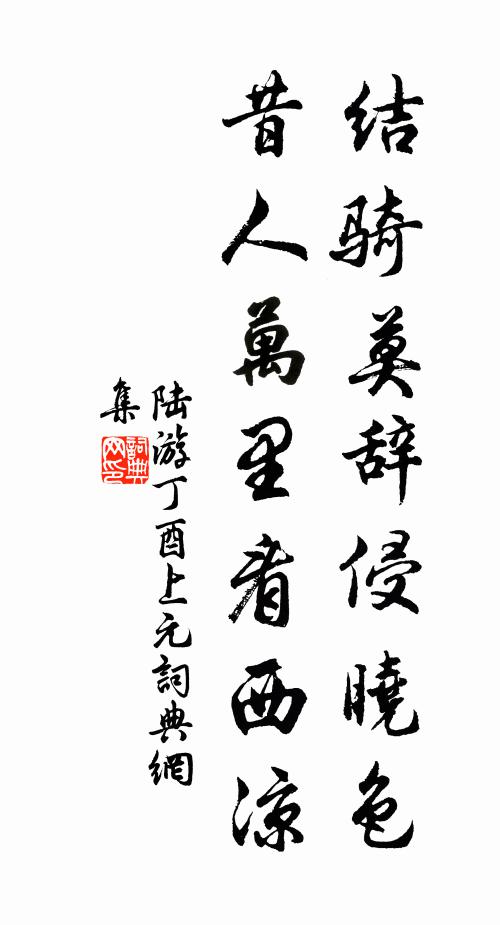 结骑莫辞侵曉色
昔人萬里看西凉
陆游丁酉上元詞典網
集
詞典网印